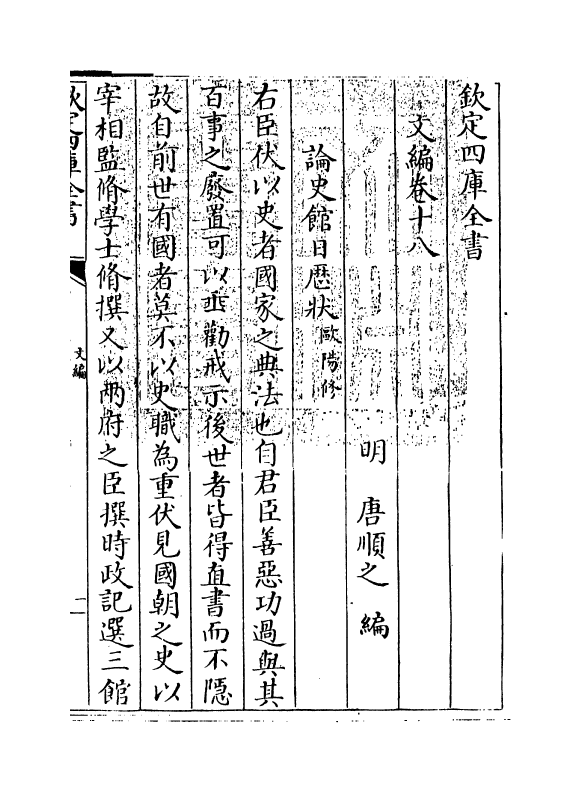 欽定四庫全書
文編卷十八
明 唐順之 編
論史館日厯狀歐陽修
右臣伏以史者國家之典法也自君臣善惡功過與其
百事之廢置可以垂勸戒示後世者皆得直書而不隱
故自前世有國者莫不以史職為重伏見國朝之史以
宰相監脩學士脩撰又以兩府之臣撰時政記選三館
欽定四庫全書
文編
一